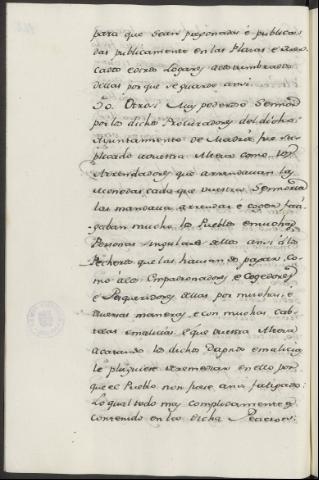 para que sean pregonadas é publicadas
das publicamente en las Plazas é Mercados
cados é otros Logares acostumbrados
dellas porque se guarde ansi.
50. Otrosi Muy poderoso Señor
por los dichos Procuradores del dicho
Ayuntamiento de Madrid fue suplicado
plicado a vuestra Alteza como los
Arrendadores que arrendavan las
Monedas cada que vuestra Señoria
las mandava arrendar é coger fatigaban
gaban mucho los Pueblos é muchas
Personas singulares dellos ansi á los
Pecheros que las havian de pagar, como
mo á los Empadronadores é Cogedores
é Pesquisidores dellas por muchas é
diversas maneras, é con muchas cabtelas
telas é malicias, é que vuestra Alteza
acatando los dichos dapnos é malicias
le pluguiere de remediar en ello porque
que el Pueblo non fuese ansi fatigado:
Lo qual todo muy complidamente es
contenido en la dicha Peticion: